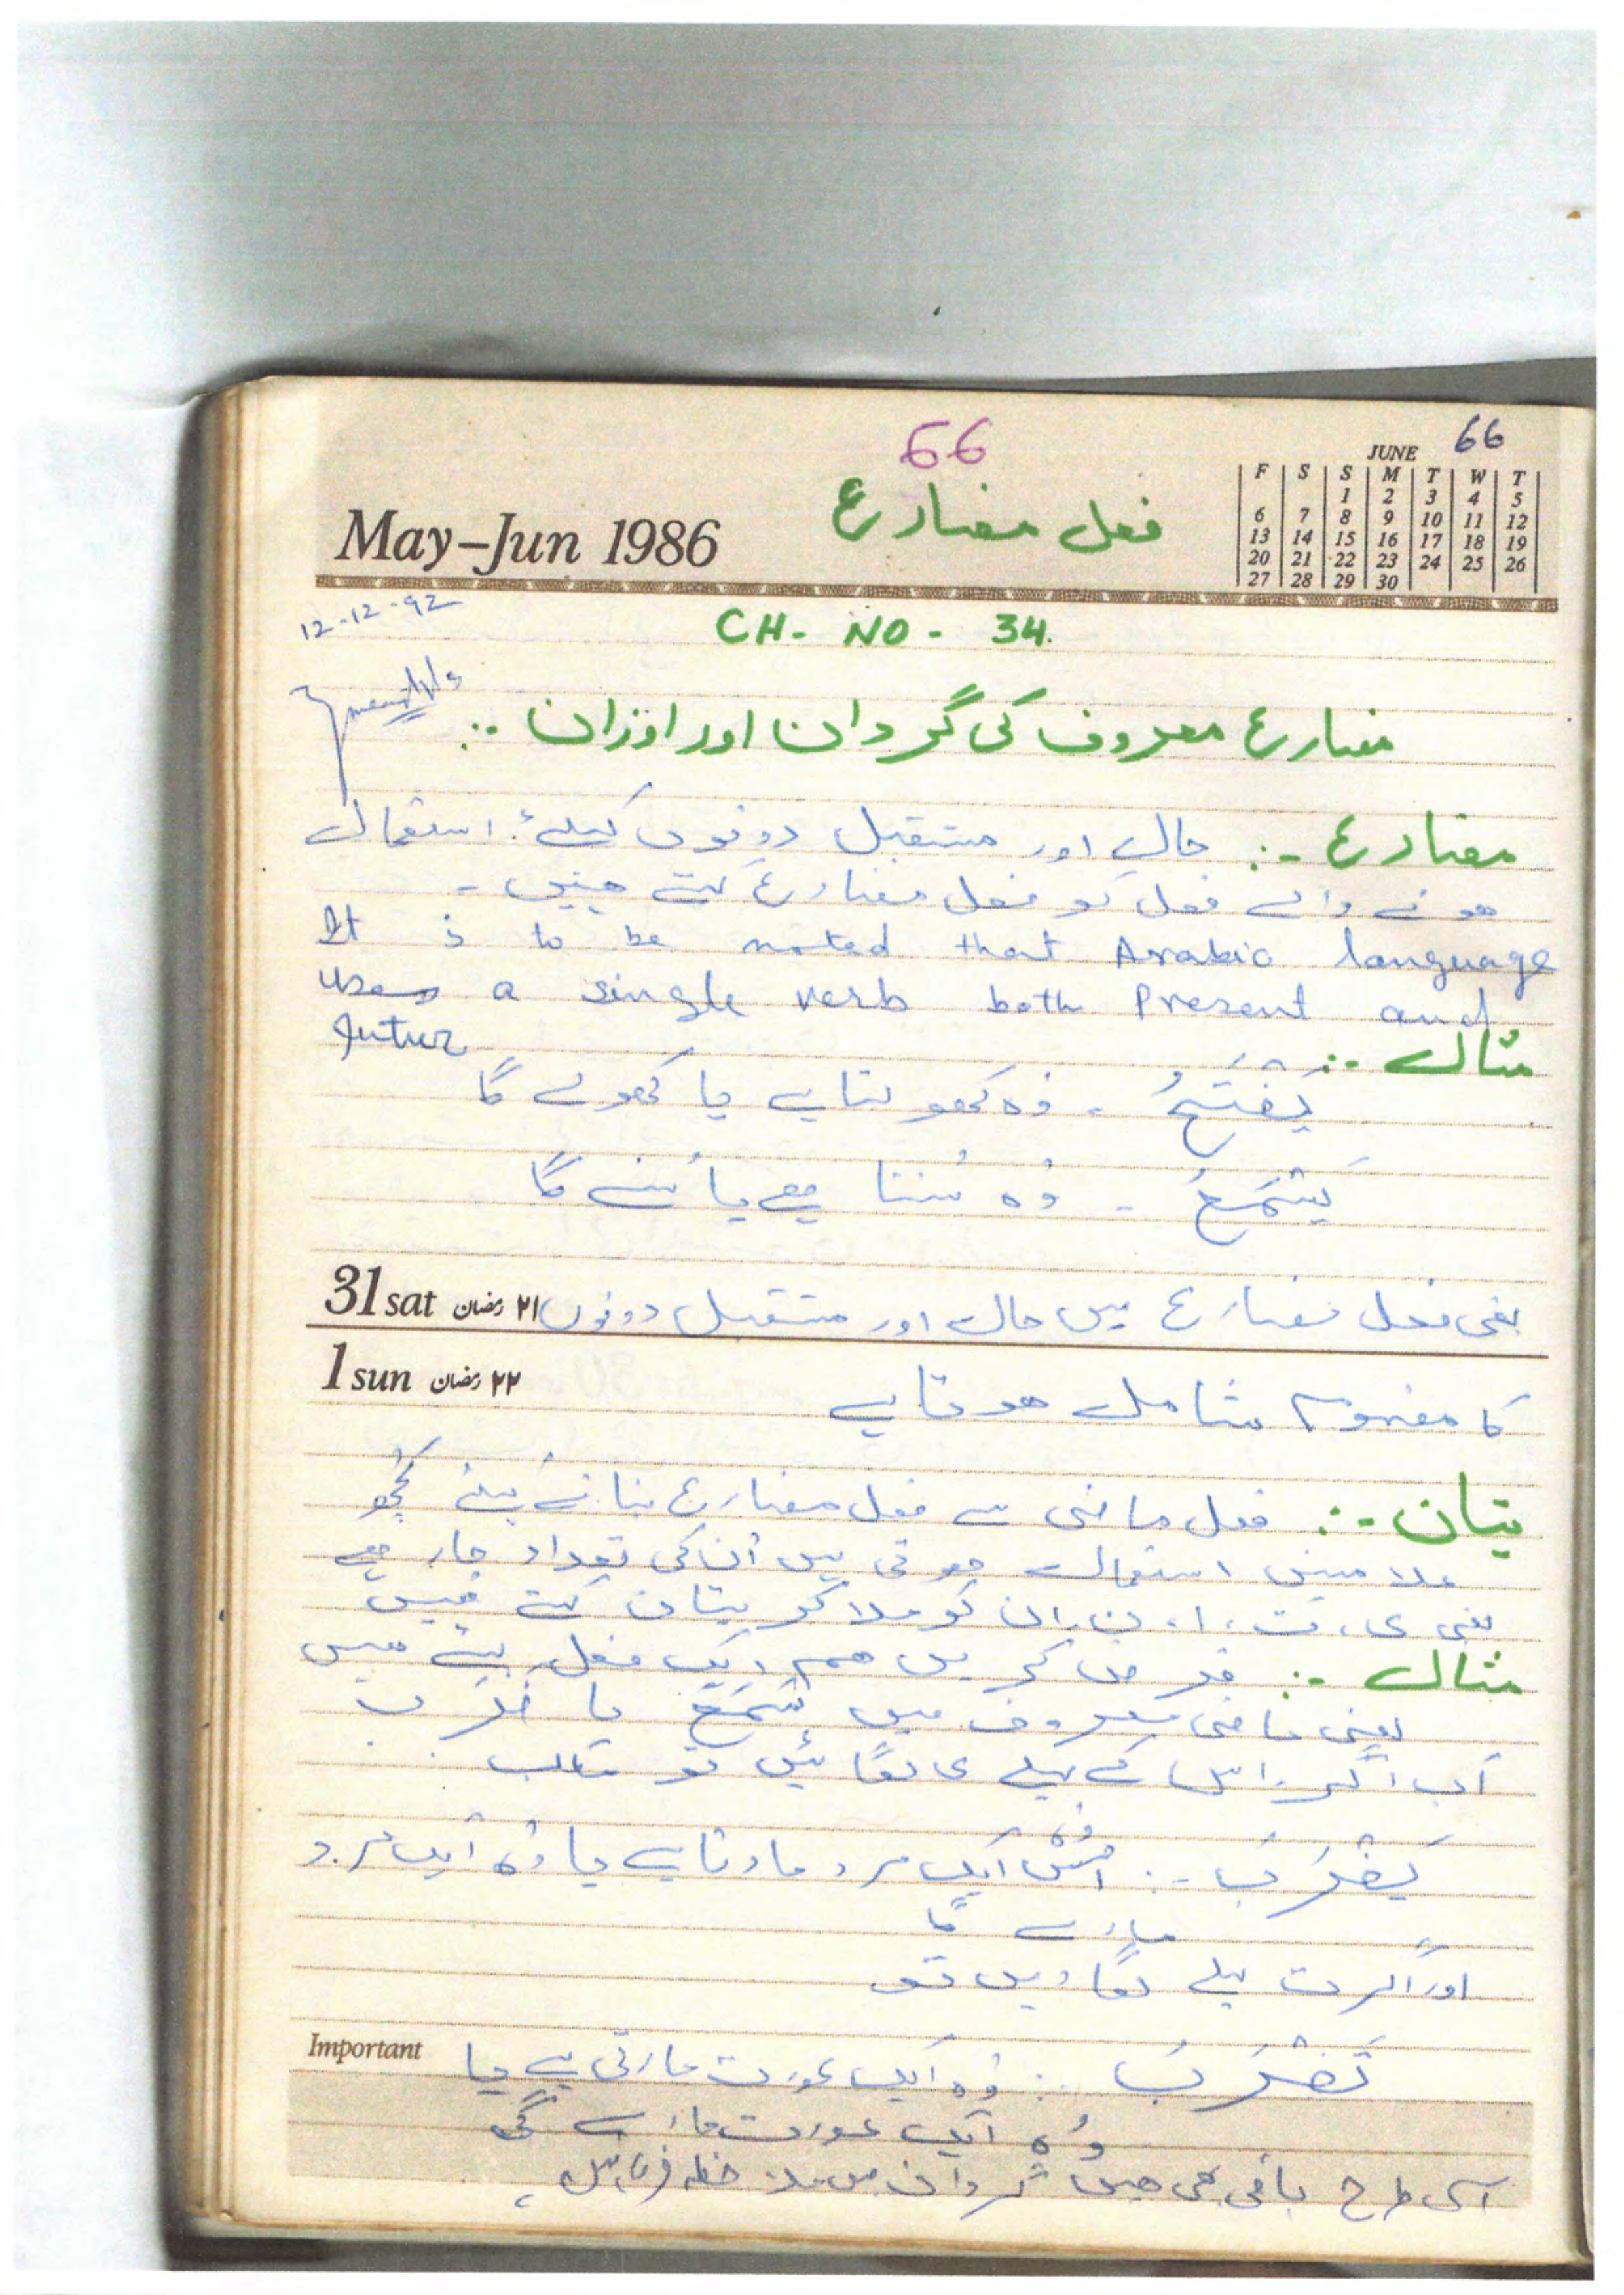 66
66
JUNE
F S S M T W T
1 2 3 4 5
6 7 8 9 10 11 12
13 14 15 16 17 18 19
20 21 22 23 24 25 26
27 28 29 30
May–Jun 1986
فعل مضارع
12-12-92
CH- NO - 34.
مضارع معروف کی گردان اور اوزان :-
مضارع :- حال اور مستقبل دونوں کیلئے استعمال
ھونے والے فعل کو فعل مضارع کہتے ھیں -
It is to be noted that Arabic language
uses a single verb both Present and
futur
مثال :-
یَفْتَحُ ، وُہ کھولتا ہے یا کھولے گا
یَسْمَعُ - وُہ سُنتا ھے یا سُنے گا
31 sat ۲۱ رمضان
یعنی فعل مضارع میں حال اور مستقبل دونوں
1 sun ۲۲ رمضان
کا مفہوم شامل ھوتا ہے
یتان :- فعل ماضی سے فعل مضارع بنانے کیلئے کُچھ
علامتیں استعمال ھوتی ہیں اُن کی تعداد چار ھے
یعنی ی، ت، ا، ن، ان کو ملا کر یتان کہتے ھیں
مثال :- فرض کریں ھم ایک فعل لیتے ھیں
یعنی ماضی معروف میں سَمِعَ یا ضَرَبَ
اَب اگر اس کے پہلے ی لگائیں تو مطلب
یَضْرَبُ :- وُہ ایک مرد مارتا ہے یا وُہ ایک مرد
مارے گا
اور اگر ت پہلے لگا دیں تو
Important
تَضْرَبُ : وُہ ایک عورت مارتی ہے یا
وُہ ایک عورت مارے گی
اسی طرح باقی بھی ھیں گردان میں ملاحظہ فرمائیں